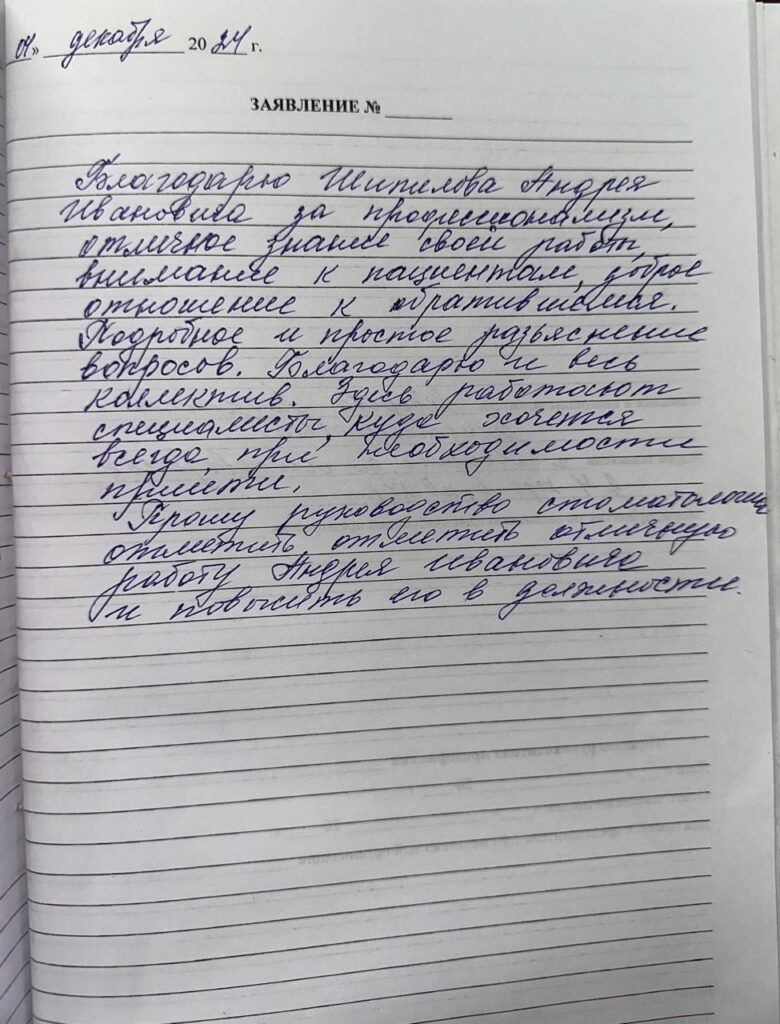 04» декабря 2024 г.
ЗАЯВЛЕНИЕ №
Благодарю Шипилова Андрея
Ивановича за профессионализм,
отличное знание своей работы,
внимание к пациентам, доброе
отношение к обратившимся.
Подробное и простое разъяснение
вопросов. Благодарю и весь
коллектив. Здесь работают
специалисты, куда хочется
всегда, при необходимости
прийти.
Прошу руководство стоматологии
отметить отметить отличную
работу Андрея Ивановича
и повысить его в должности.